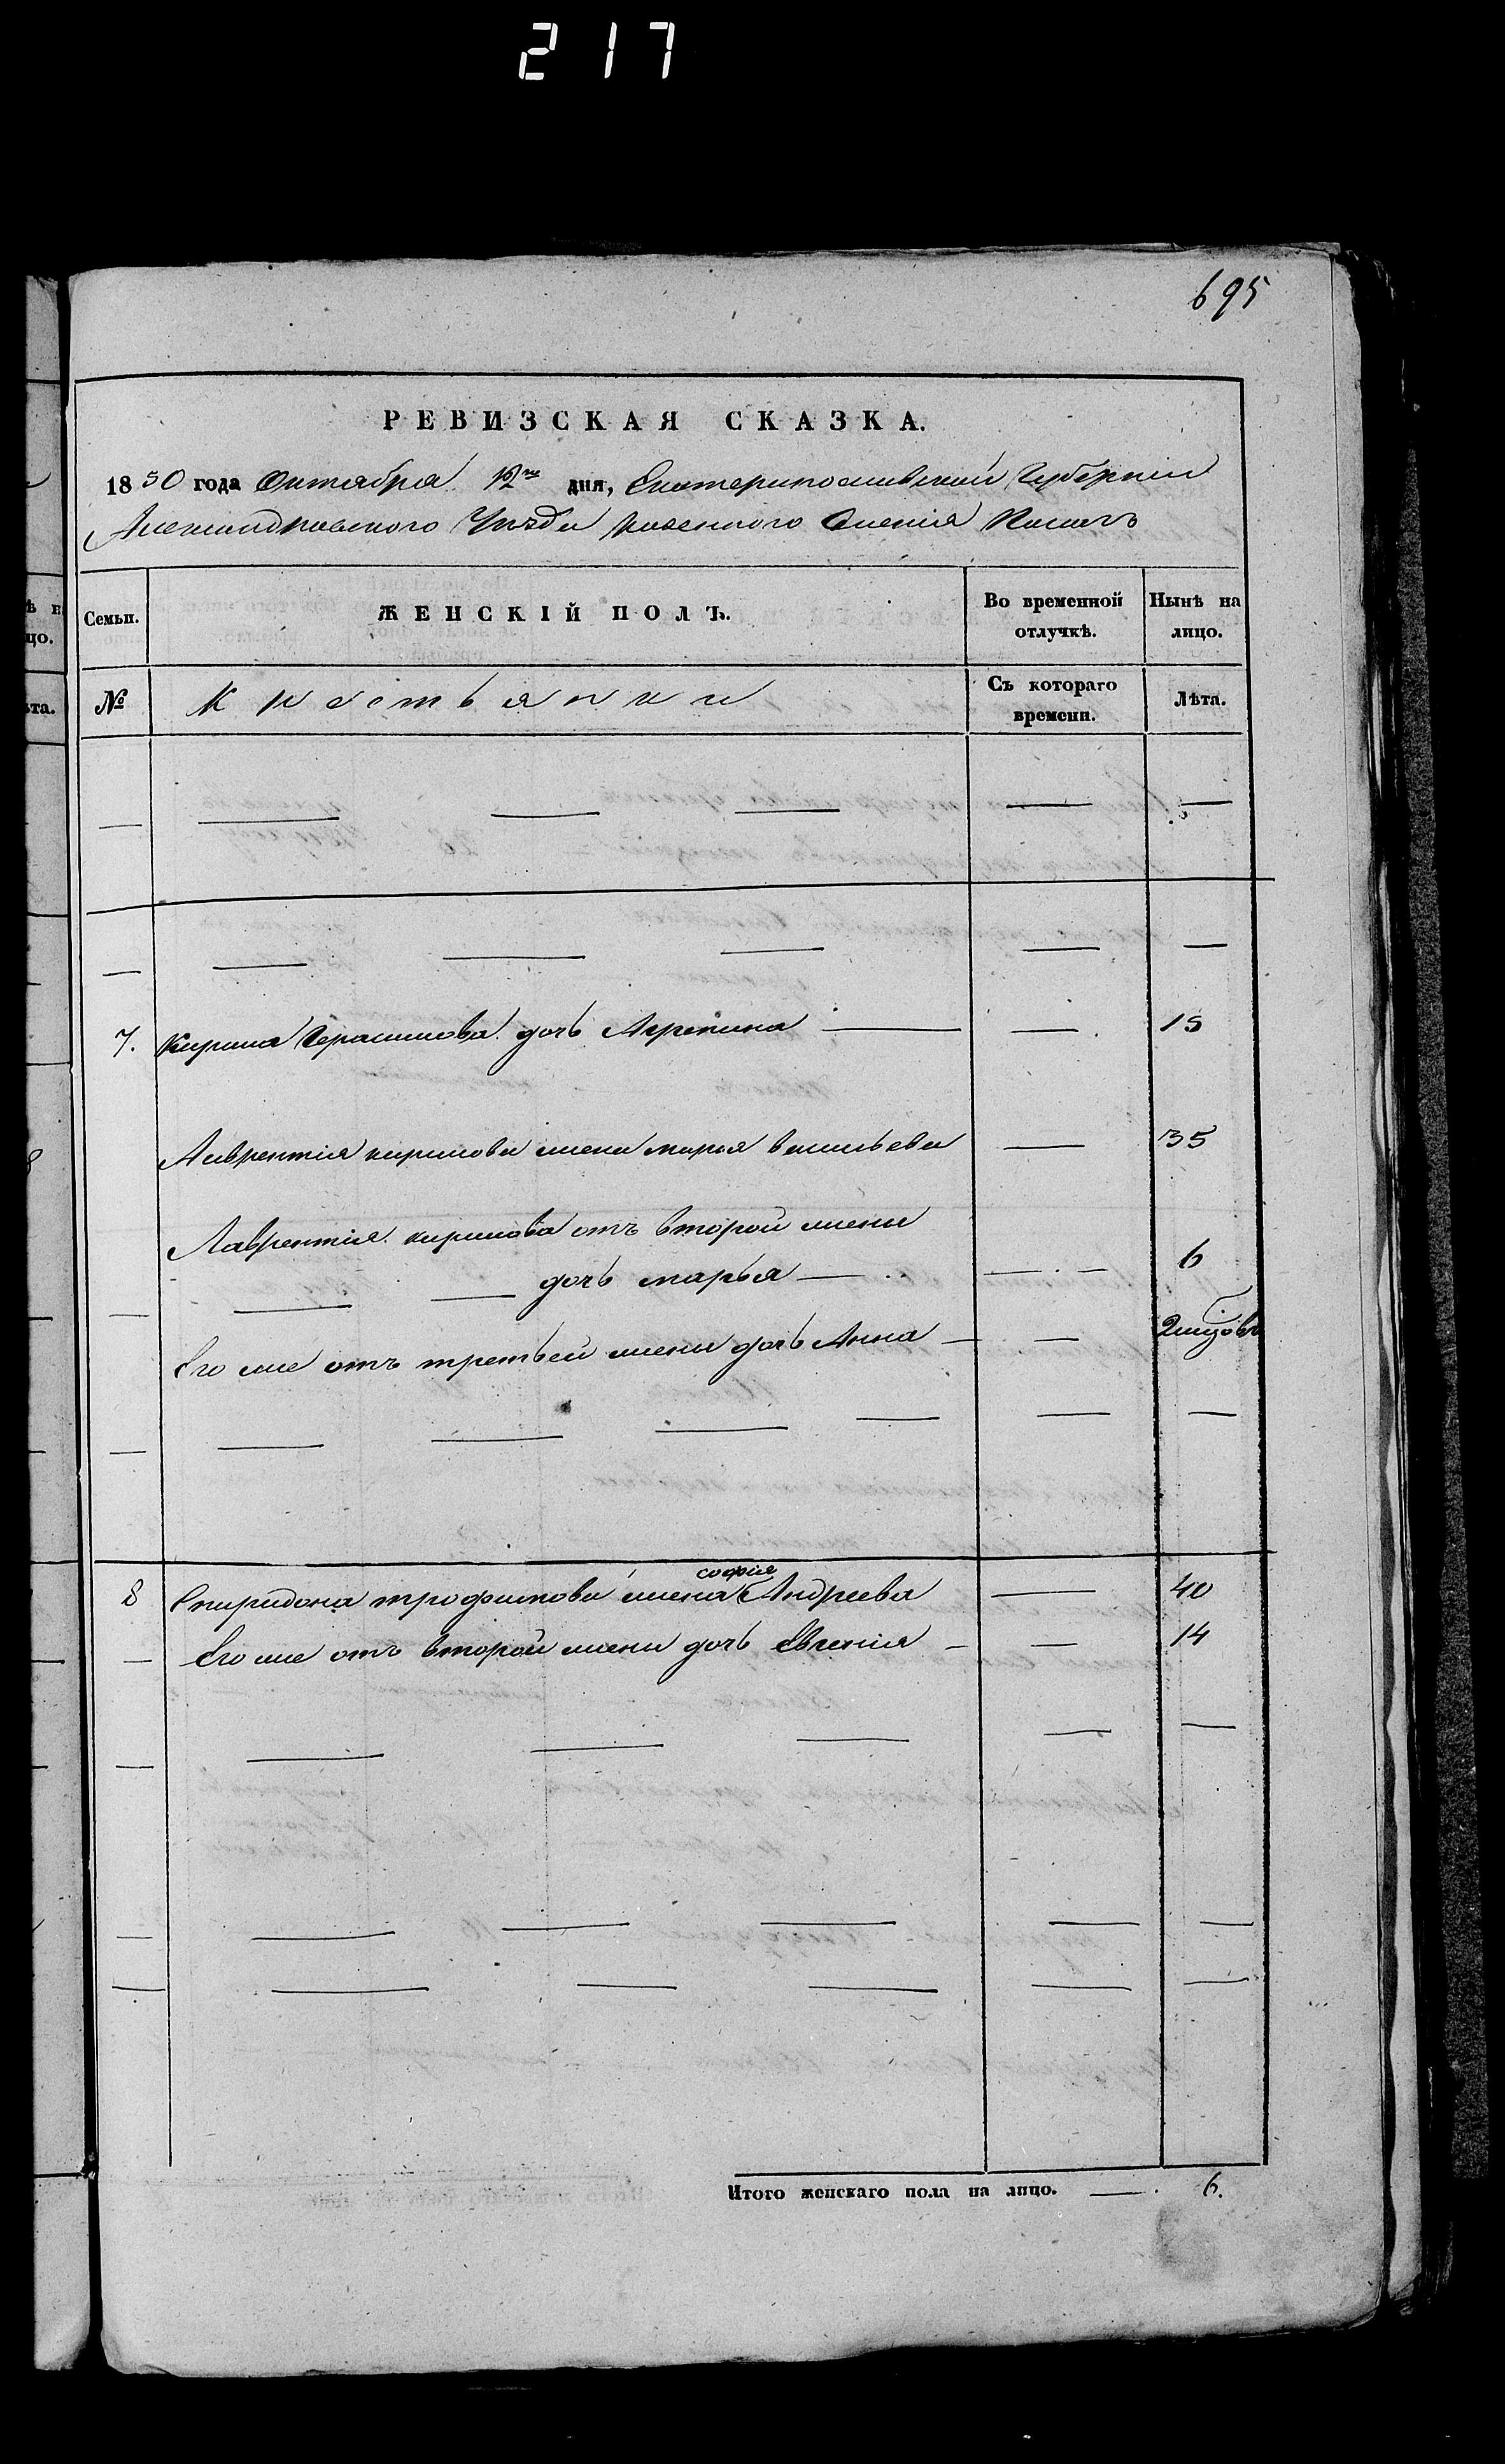 217
695
РЕВИЗСКАЯ СКАЗКА.
1850 года Октября 12го дня, Екатеринославской Губерніи
Александровского Уезда казенного Селенія
Семьи. ЖЕНСКІЙ ПОЛЪ. Во временной отлучкѣ. Нынѣ на лицо.
№ Крестьянки Съ котораго времени. Лѣта.
7. Кирила Герасимова дочь Агрепина — — 15
Лаврентія кирилова жена марья васильева — 35
Лаврентія кирилова отъ второй жены
дочь марья — — 6
Его же отъ третьей жены дочь Анна — —
софія
8 Спиридона трофимова жена Андреева — 40
Его же отъ второй жены дочь Евгенія — — 14
Итого женскаго пола на лицо. — 6.